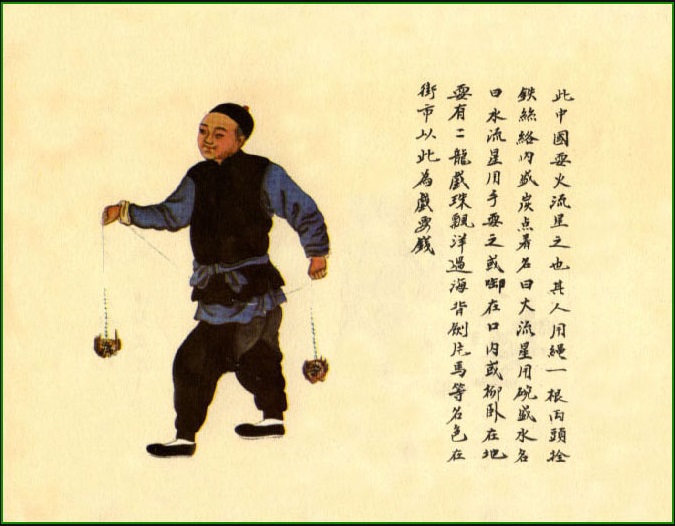 此中國耍火流星之也其人用繩一根兩頭拴
鉄絲絡內盛炭点着名曰火流星用碗盛水名
曰水流星用手耍之或啣在口內或柳卧在地
耍有二龍戯珠飄洋過海背劍片馬等名色在
街市以此為戯要錢